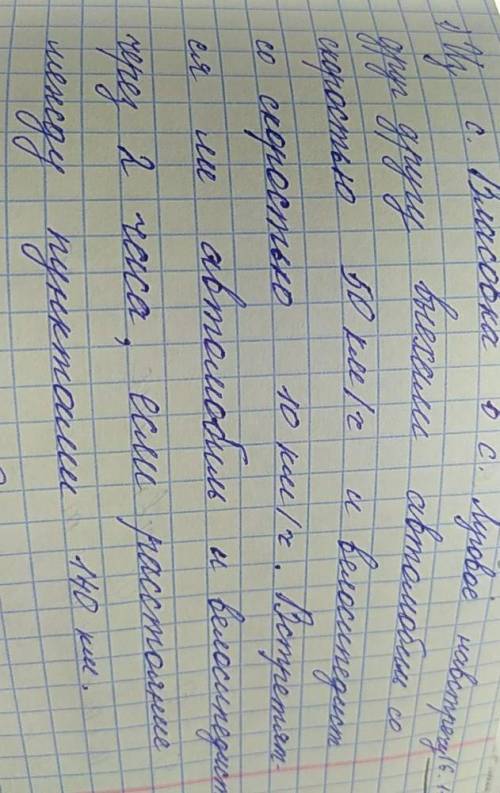 1) Из с. Власовка в с. Луговое навстречу (6.
друг другу выехали автомобиль со
скоростью 50 км/ч и велосипедист
со скоростью 10 км/ч. Встретят-
ся ли автомобиль и велосипедист
через 2 часа, если расстояние
между пунктами 140 км.